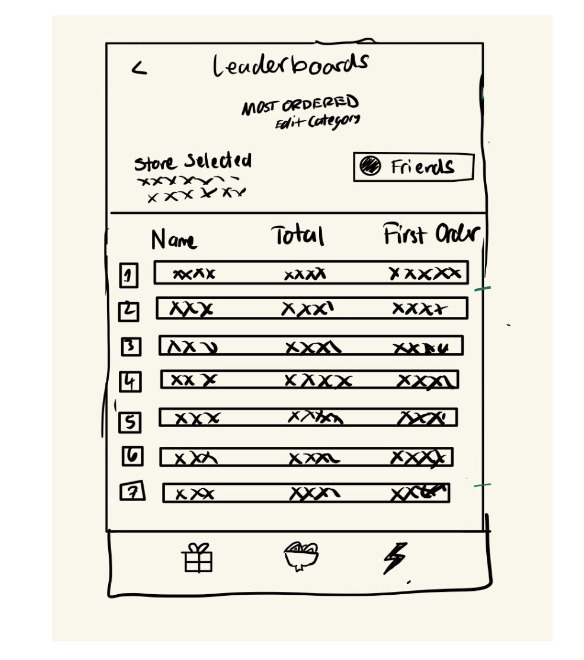 <
Leaderboards
MOST ORDERED
Edit Category
Store Selected
xxxxxx
xxxxxx
Friends
Name Total First Order
1 xxxx xxxx xxxxx
2 xxx xxx xxxx
3 xxx xxxx xxxx
4 xxx xxxx xxxx
5 xxx xxxx xxxx
6 xxx xxxx xxxx
7 xxx xxxx xxxx